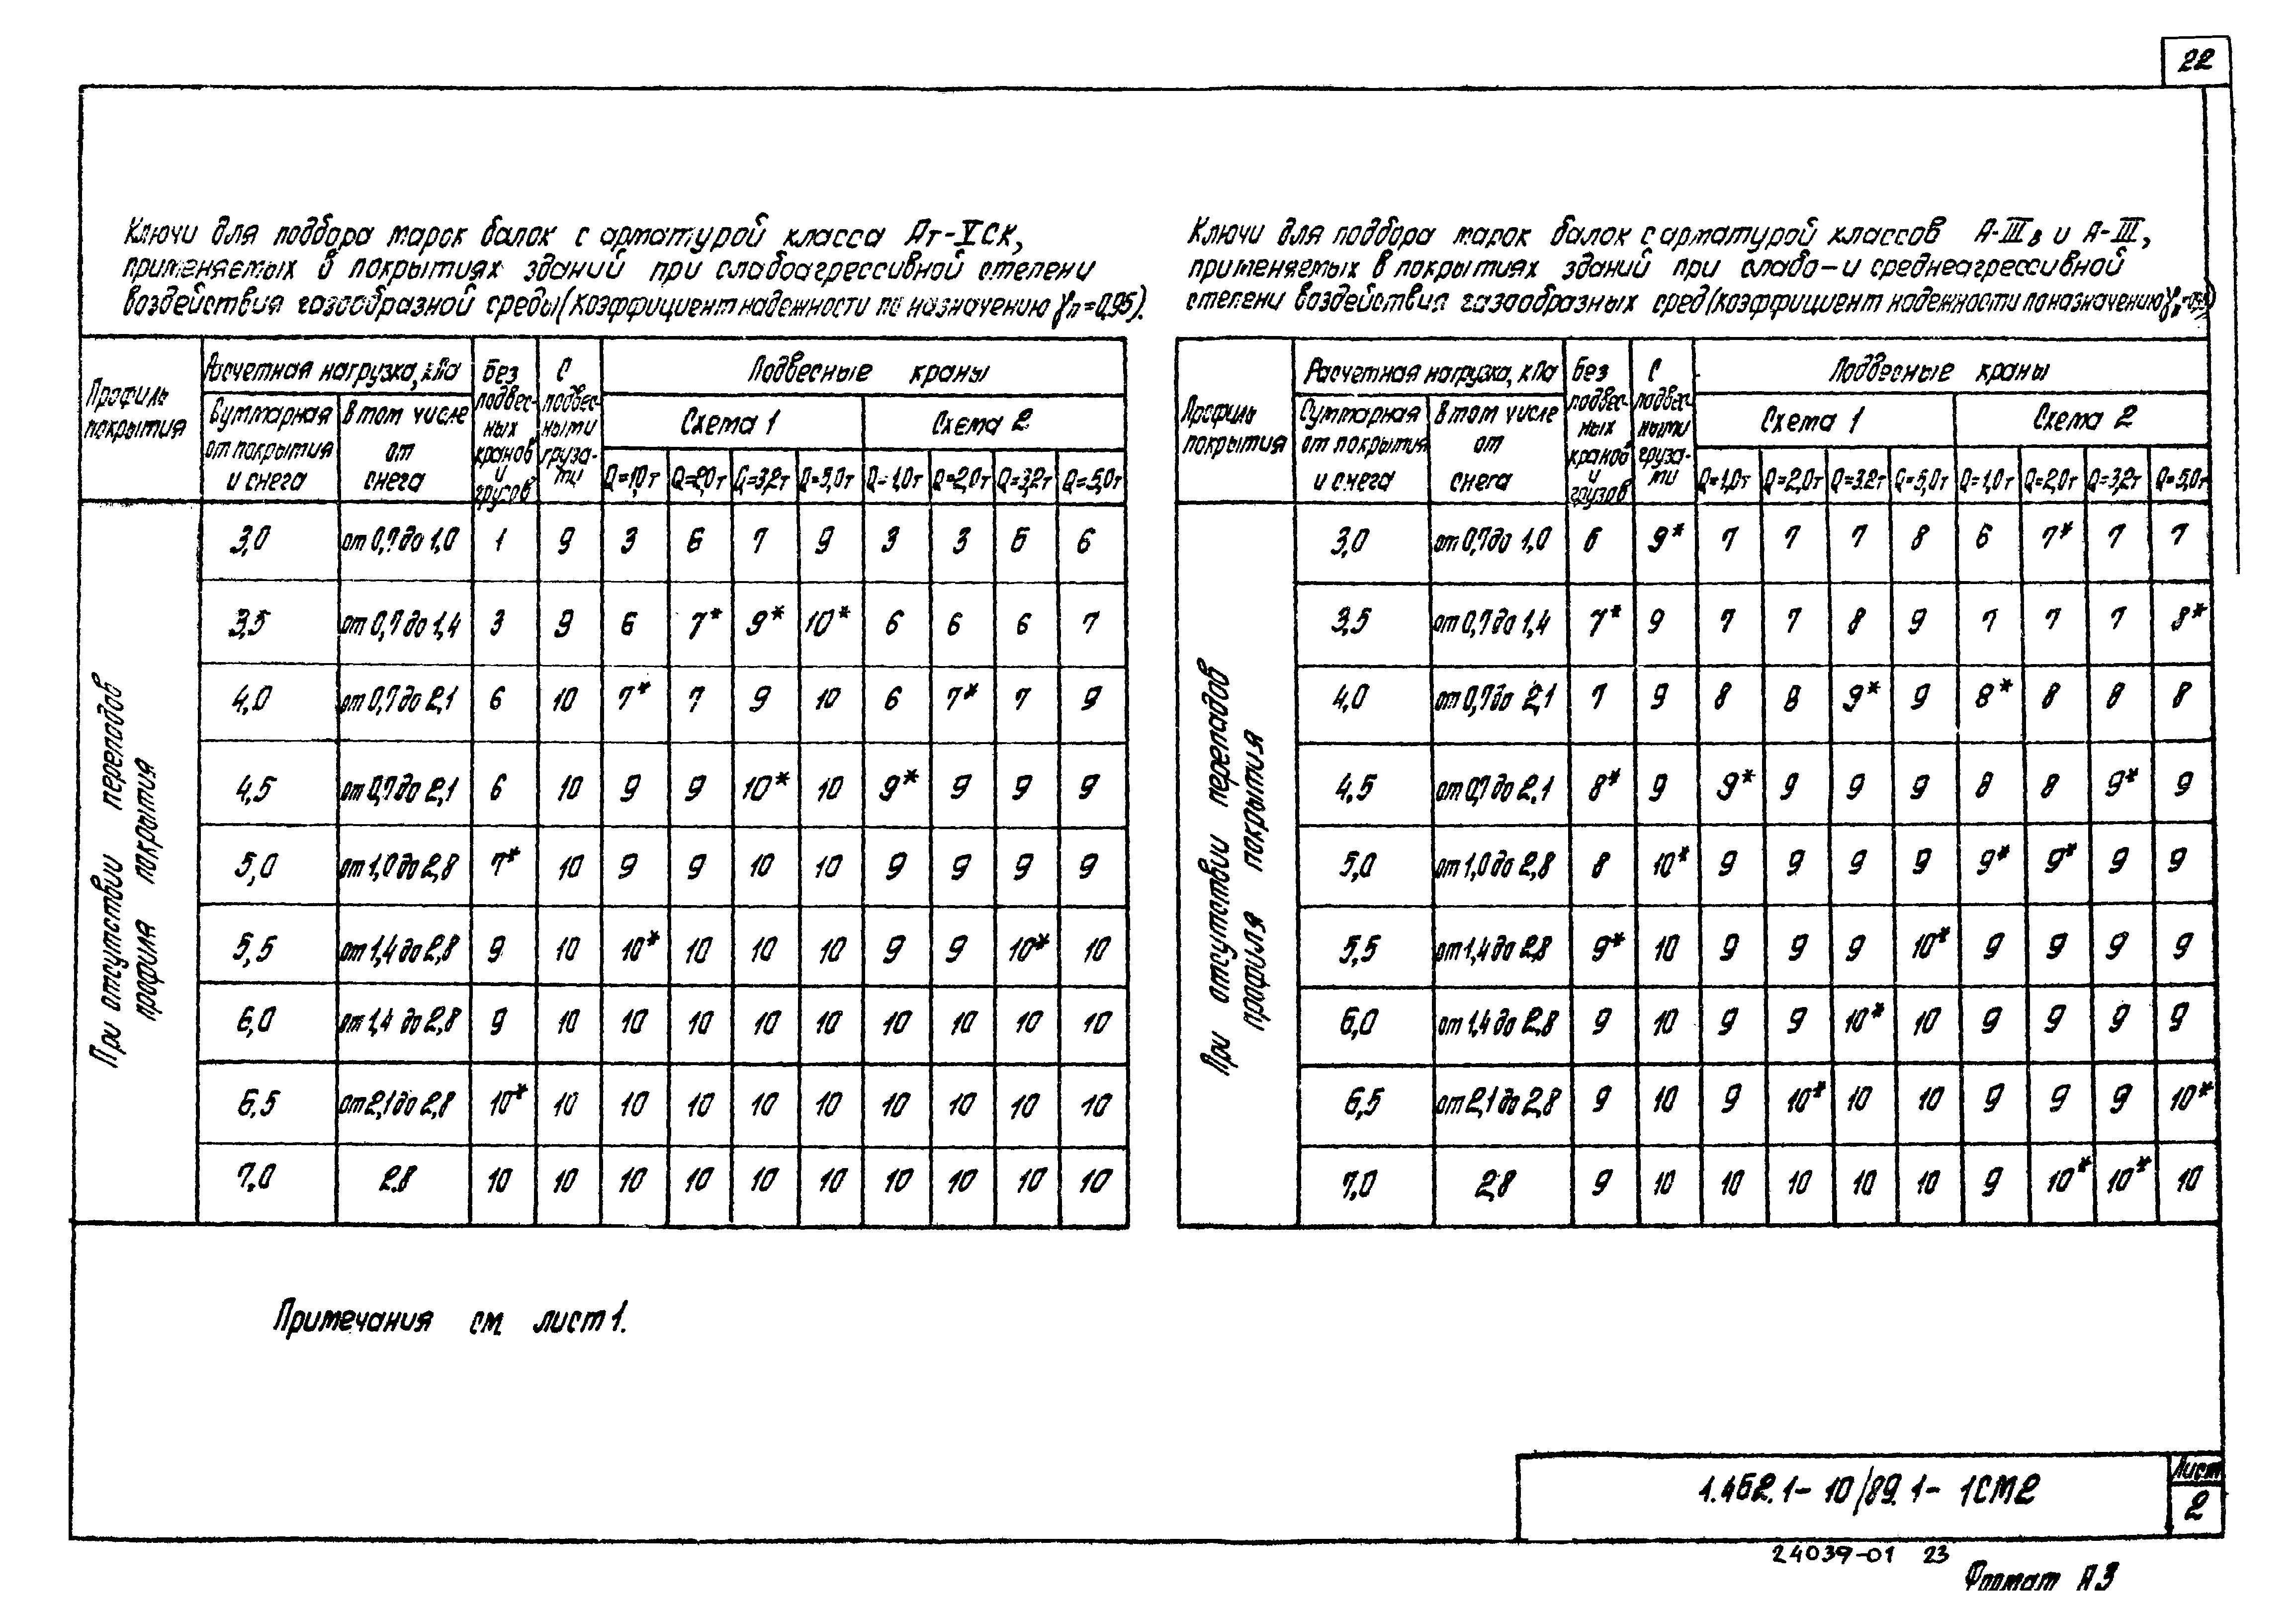 22
Ключи для подбора марок балок с арматурой класса Ат-VСК,
применяемых в покрытиях зданий при слабоагрессивной степени
воздействия газообразной среды (коэффициент надежности по назначению γn=0,95).
Профиль покрытия
Расчетная нагрузка, кПа
Суммарная от покрытия и снега
В том числе от снега
Без подвесных кранов и грузов
С подвесными грузами
Подвесные краны
Схема 1
Схема 2
Q=1,0т Q=2,0т Q=3,2т Q=5,0т Q=1,0т Q=2,0т Q=3,2т Q=5,0т
При отсутствии перепадов
профиля покрытия
3,0 от 0,7 до 1,0 1 9 3 6 7 9 3 3 6 6
3,5 от 0,7 до 1,4 3 9 6 7* 9* 10* 6 6 6 7
4,0 от 0,7 до 2,1 6 10 7* 7 9 10 6 7* 7 9
4,5 от 0,7 до 2,1 6 10 9 9 10* 10 9* 9 9 9
5,0 от 1,0 до 2,8 7* 10 9 9 10 10 9 9 9 9
5,5 от 1,4 до 2,8 9 10 10* 10 10 10 9 9 10* 10
6,0 от 1,4 до 2,8 9 10 10 10 10 10 10 10 10 10
6,5 от 2,1 до 2,8 10* 10 10 10 10 10 10 10 10 10
7,0 2,8 10 10 10 10 10 10 10 10 10 10
Ключи для подбора марок балок с арматурой классов А-IIIв и А-III,
применяемых в покрытиях зданий при слабо- и среднеагрессивной
степени воздействия газообразных сред (коэффициент надежности по назначению γn=0,95)
Профиль покрытия
Расчетная нагрузка, кПа
Суммарная от покрытия и снега
В том числе от снега
Без подвесных кранов и грузов
С подвесными грузами
Подвесные краны
Схема 1
Схема 2
Q=1,0т Q=2,0т Q=3,2т Q=5,0т Q=1,0т Q=2,0т Q=3,2т Q=5,0т
При отсутствии перепадов
профиля покрытия
3,0 от 0,7 до 1,0 6 9* 7 7 7 8 6 7* 7 7
3,5 от 0,7 до 1,4 7* 9 7 7 8 9 7 7 7 8*
4,0 от 0,7 до 2,1 7 9 8 8 9* 9 8* 8 8 8
4,5 от 0,7 до 2,1 8* 9 9* 9 9 9 8 8 9* 9
5,0 от 1,0 до 2,8 8 10* 9 9 9 9 9* 9* 9 9
5,5 от 1,4 до 2,8 9* 10 9 9 9 10* 9 9 9 9
6,0 от 1,4 до 2,8 9 10 9 9 10* 10 9 9 9 9
6,5 от 2,1 до 2,8 9 10 9 10* 10 10 9 9 9 10*
7,0 2,8 9 10 10 10 10 10 9 10* 10* 10
Примечания см. лист 1.
1.462.1-10/89.1-1СМ2
Лист
2
24039-01 23
Формат А3